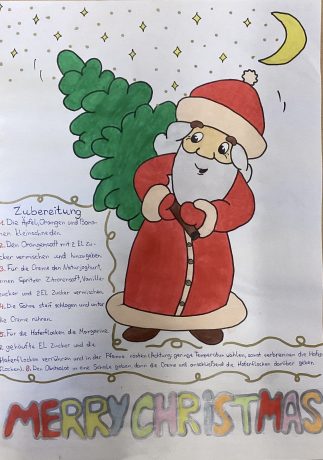 Zubereitung
1. Die Äpfel, Orangen und Bana-
nen kleinschneiden.
2. Den Orangensaft mit 2 EL Zu-
cker vermischen und hinzugeben.
3. Für die Creme den Naturjoghurt,
einen Spritzer Zitronensaft, Vanille-
zucker und 2 EL Zucker vermischen.
4. Die Sahne steif schlagen und unter
die Creme rühren.
5. Für die Haferflocken die Margarine,
2 gehäufte EL Zucker und die
Haferflocken verrühren und in der Pfanne rösten (Achtung, geringe Temperatur wählen, sonst verbrennen die Hafer-
flocken). 6. Den Obstsalat in eine Schale geben, dann die Creme und anschließend die Haferflocken darüber geben.
MERRY CHRiSTMAS